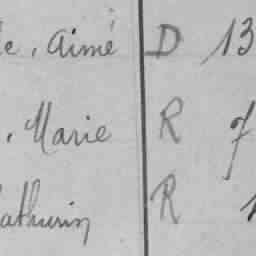 e, Aimé D 13
, Marie R 7
athurin R